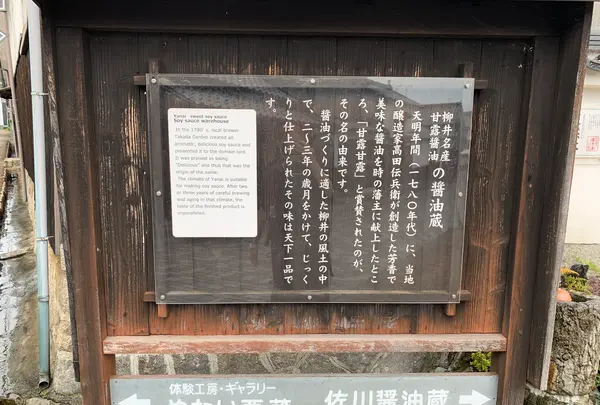 柳井名産
甘露醤油の醤油蔵
天明年間(一七八〇年代)に、当地
の醸造家高田伝兵衛が創造した芳香で
美味な醤油を時の藩主に献上したとこ
ろ、「甘露甘露」と賞賛されたのが、
その名の由来です。
醤油づくりに適した柳井の風土の中
で、二〜三年の歳月をかけて、じっく
りと仕上げられたその味は天下一品で
す。
Yanai sweet soy sauce
Soy sauce warehouse
In the 1780's, local brewer
Takada Denbei created an
aromatic, delicious soy sauce and
presented it to the domain lord.
It was praised as being
"Delicious" and thus that was the
origin of the name.
The climate of Yanai is suitable
for making soy sauce. After two
or three years of careful brewing
and aging in that climate, the
taste of the finished product is
unparalleled.
体験工房・ギャラリー
佐川醤油蔵